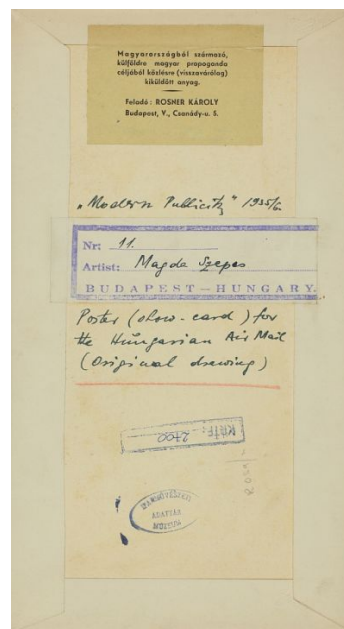 Magyarországból származó,
külföldre magyar propaganda
céljából közlésre (visszavárólag)
kiküldött anyag.
Feladó: ROSNER KÁROLY
Budapest, V., Csanády-u. 5.
„Modern Publicity" 1935/6.
Nr: 11.
Artist: Magda Szepes
BUDAPEST—HUNGARY.
Poster (show-card) for
the Hungarian Air Mail
(Original drawing)
KRTF: 2700
IPARMŰVÉSZETI
ADATTÁR
MÚZEUM